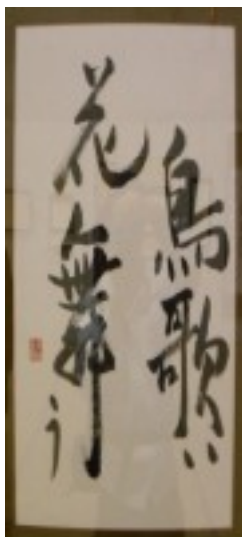 鳥歌い
花舞う